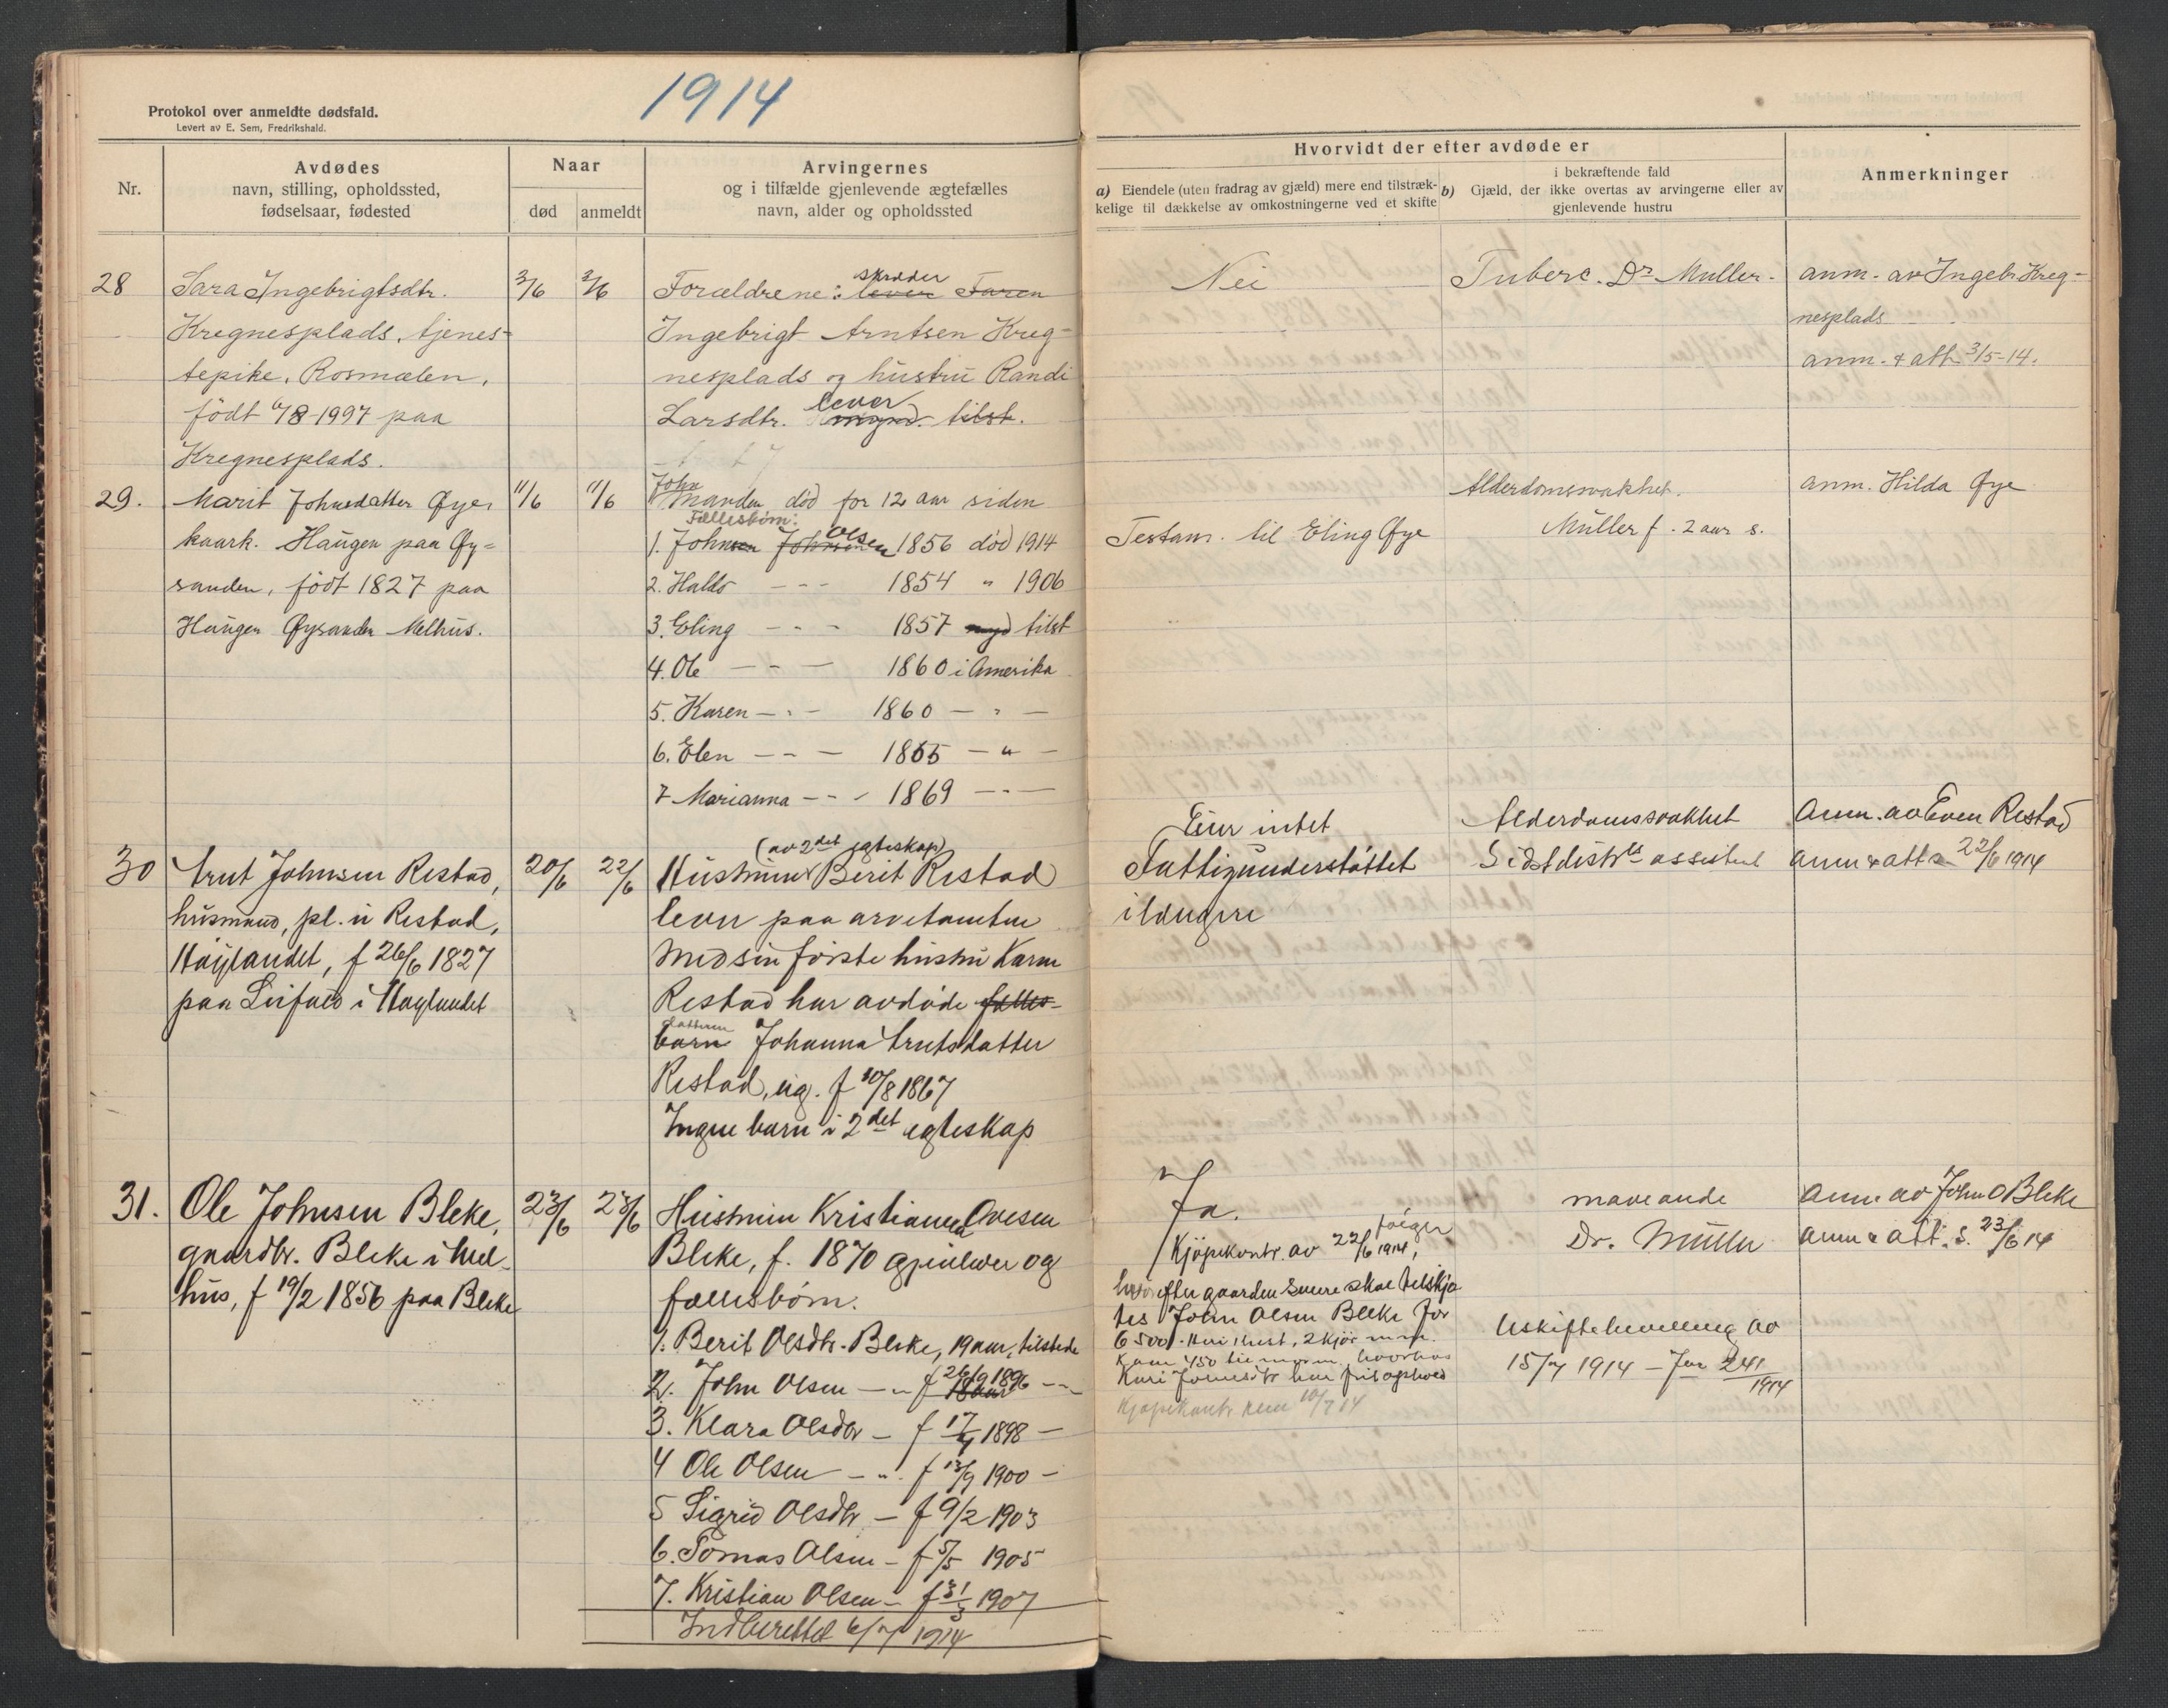 1914
Protokol over anmeldte dødsfald.
Levert av E. Sem, Fredrikshald.
Nr.
Avdødes
navn, stilling, opholdssted,
fødselsaar, fødested
Naar
død
anmeldt
Arvingernes
og i tilfælde gjenlevende ægtefælles
navn, alder og opholdssted
Hvorvidt der efter avdøde er
a) Eiendele (uten fradrag av gjæld) mere end tilstræk-
kelige til dækkelse av omkostningerne ved et skifte
i bekræftende fald
b) Gjæld, der ikke overtas av arvingerne eller av
gjenlevende hustru
Anmerkninger
28
Sara Ingebrigtsdtr.
Kregnesplads, tjenes-
tepike, Rosmælen,
født 6/8-1997 paa
Kregnesplads.
3/6
3/6
skræder
Forældrene: lever Faren
Ingebrigt Arntsen Kreg-
nesplads og hustru Randi
lever
Larsdtr. tilst.
Nei
Tuberc. Dr Müller.
anm. av Ingebr. Kreg-
nesplads
anm. & att 3/5-14.
29.
Marit Johnsdatter Øye,
kaark. Haugen paa Øy-
sanden, født 1827 paa
Haugen Øysanden Melhus.
11/6
11/6
John
Manden død for 12 aar siden
Fællesbørn:
1. Johnsen Johnsen Olsen 1856 død 1914
2. Haldo - - - 1854 " 1906
3. Eling - - - 1857 myd tilst
4. Ole - - - 1860 i Amerika
5. Karen - - - 1860 - " -
6. Elen - - - 1865 - " -
7 Marianna - - - 1869 - - -
Testam. til Eling Øye
Alderdomssvakhet.
Müller f. 2 aar s.
anm. Hilda Øye
30
Arnt Johnsen Restad,
husmand, pl. u Restad,
Høilandet, f 26/6 1827
paa i Høylandet
20/6
22/6
(av 2det egteskap)
Hustruen Berit Restad
lever paa arvetomten
Med sin første hustru Karen
Restad har avdøde fælles-
datteren
barn Johanna Arntsdatter
Restad, ug. f 10/8 1867
Ingen barn i 2det egteskap
Eier intet
Fattigunderstøttet
ildugere
Alderdomssvakhet
Sidst distrts assistent
Anm. av Even Restad
anm & att 22/6 1914
31.
Ole Johnsen Bleke,
gaardbr. Bleke i Mel-
hus, f 19/2 1856 paa Bleke
23/6
23/6
Hustruen Kristianna Ovesen
Bleke, f. 1870 gjenlever og
fællesbørn.
1. Berit Olsdtr. Bleke, 19 aar, tilstede
2. John Olsen - " f 26/9 1896 - -
18 aar
3. Klara Olsdtr - f 17/4 1898 -
4 Ole Olsen - " - f 13/9 1900 -
5 Sigrid Olsdtr - f 9/2 1903
6. Tomas Olsen - f 5/5 1905
7. Kristian Olsen - f 31/3 1907
Indberettet 6/7 1914
Ja.
foreger
Kjøpekontr. av 22/6 1914,
hvorefter gaarden senere skal tilskjø
tes John Olsen Bleke for
6500.- Heri 1 hest, 2 kjør m.m.
Kjøpekontr. 10/7 14
maveonde
Dr. Müller
Uskiftebevilling av
15/7 1914 - Jnr 241/1914
Anm av John O Bleke
anm & att. s. 23/6 14